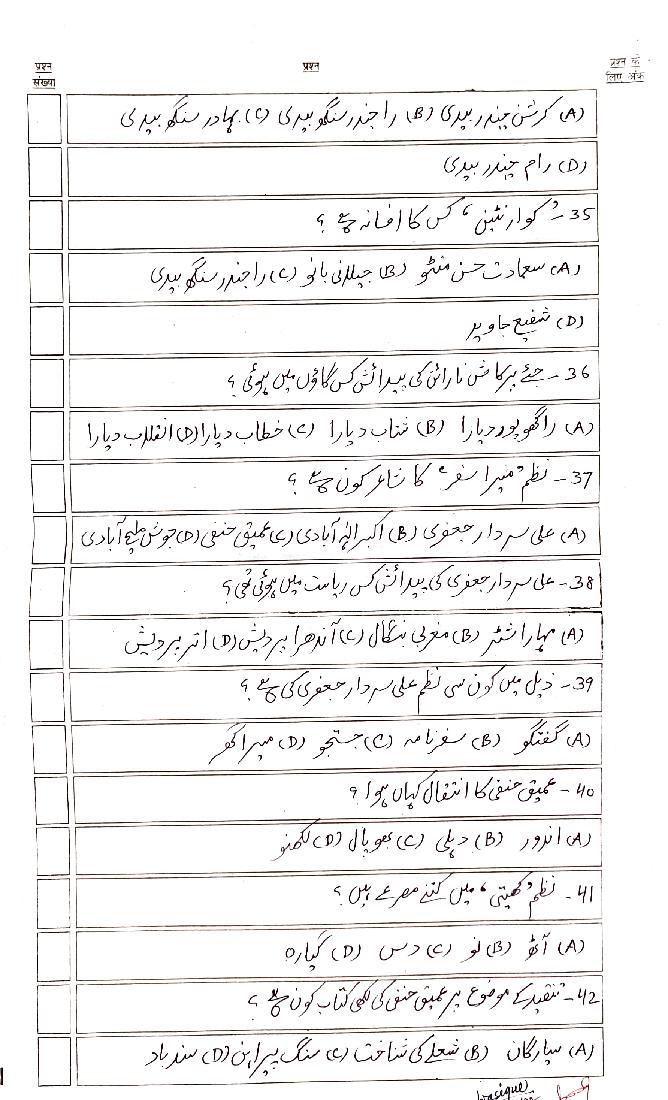 प्रश्न संख्या
प्रश्न
प्रश्न के लिए अंक
(A) کرشن چندر بیدی (B) راجندر سنگھ بیدی (C) بہادر سنگھ بیدی
(D) رام چندر بیدی
35۔ ’کوارنٹین‘ کس کا افسانہ ہے؟
(A) سعادت حسن منٹو (B) جیلانی بانو (C) راجندر سنگھ بیدی
(D) شفیع جاوید
36۔ جئے پرکاش نارائن کی پیدائش کس گاؤں میں ہوئی؟
(A) راگھوپور دیارا (B) شتاب دیارا (C) خطاب دیارا (D) انقلاب دیارا
37۔ نظم ’میرا سفر‘ کا شاعر کون ہے؟
(A) علی سردار جعفری (B) اکبر الہٰ آبادی (C) عمیق حنفی (D) جوش ملیح آبادی
38۔ علی سردار جعفری کی پیدائش کس ریاست میں ہوئی تھی؟
(A) مہاراشٹر (B) مغربی بنگال (C) آندھرا پردیش (D) اتر پردیش
39۔ ذیل میں کون سی نظم علی سردار جعفری کی ہے؟
(A) گفتگو (B) سفرنامہ (C) جستجو (D) میرا گھر
40۔ عمیق حنفی کا انتقال کہاں ہوا؟
(A) اندور (B) دہلی (C) بھوپال (D) لکھنو
41۔ نظم ’کھیتی‘ میں کتنے مصرعے ہیں؟
(A) آٹھ (B) نو (C) دس (D) گیارہ
42۔ تنقید کے موضوع پر عمیق حنفی کی لکھی کتاب کون ہے؟
(A) سیارگان (B) شعلے کی شناخت (C) سنگ پیراہن (D) سندباد